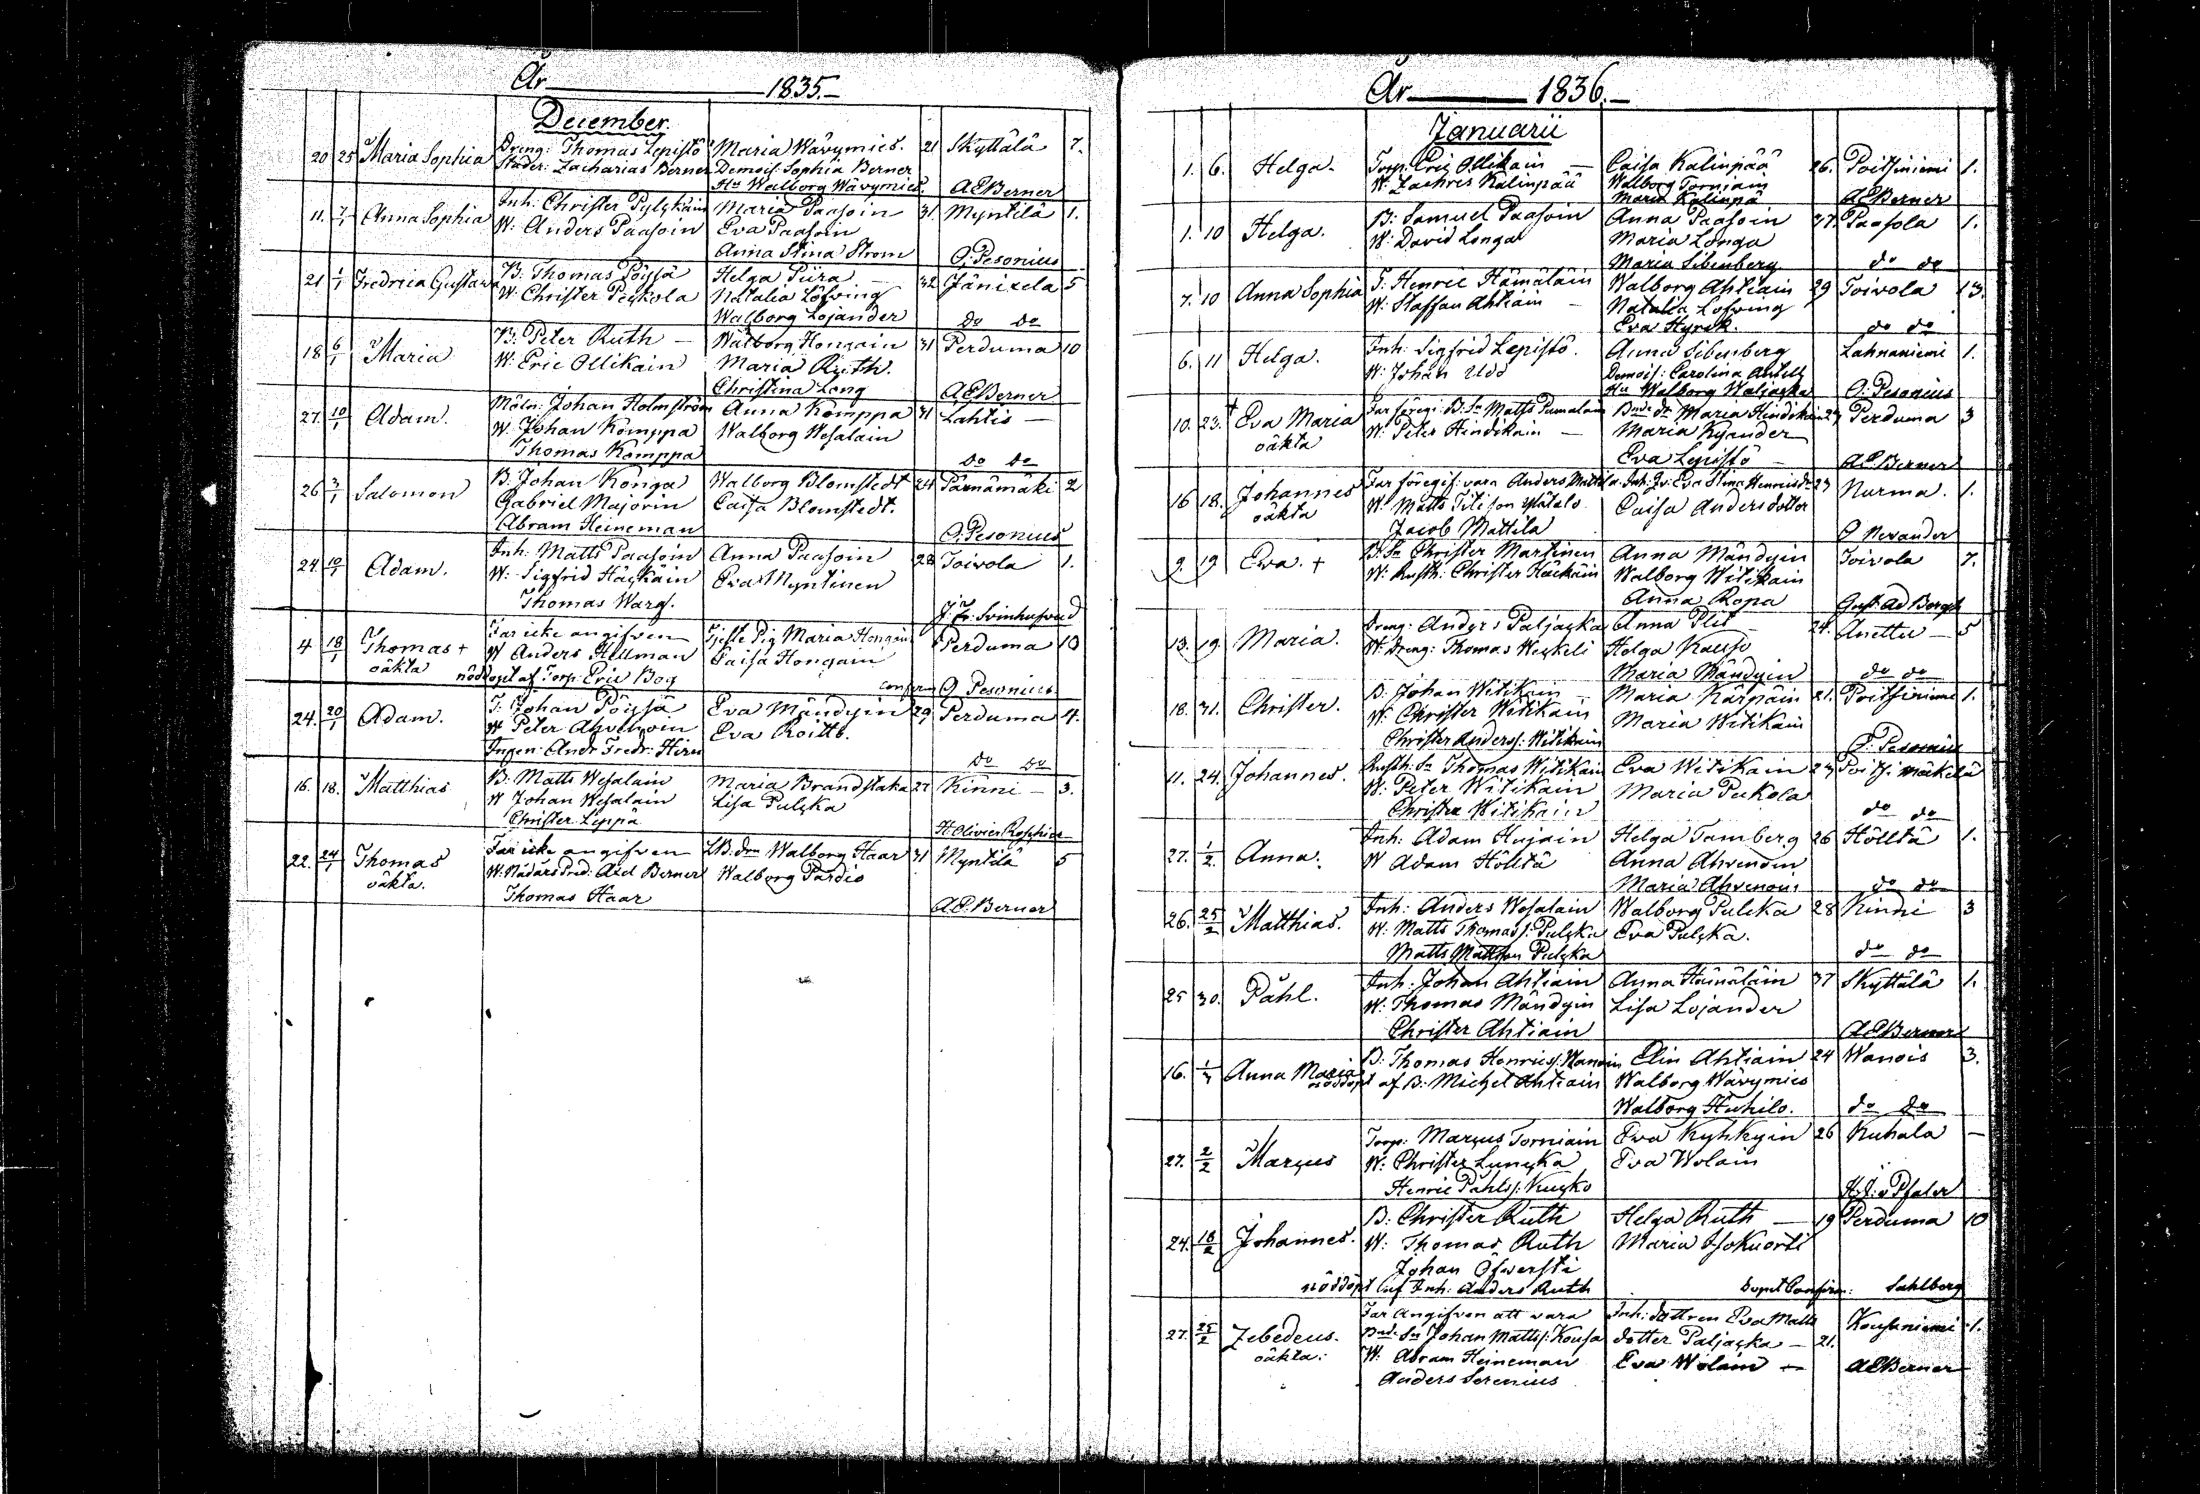 År 1835.
December.
20 25 Maria Sophia Dreng: Thomas Lepistö Maria Wävymies. 21 Skyttälä 7.
Studer: Zacharias Berner Demois: Sophia Berner
Hu Walborg Wävymies. AEBerner
11. 7/1 Anna Sophia Inh: Christer Pylckäin Maria Paasoin 31. Myntilä 1.
W: Anders Paasoin Eva Paasoin
Anna Stina Strom O. Pesonius
21 1/1 Fredrica Gustava B: Thomas Pöyjä Helga Piira 32 Jänixela 5
W: Christer Peckola Natalia Löfving
Walborg Lojander do do
18 6/1 Maria B: Peter Ruth Walborg Hongain 31 Perduma 10
W: Eric Ollikain Maria Ruth.
Christina Lang AEBerner
27. 10/1 Adam. Möln: Johan Holmström Anna Komppa 31 Lahtis
W: Johan Komppa Walborg Wesalain
Thomas Komppa do do
26 3/1 Salomon B: Johan Konga Walborg Blomstedt 24 Pärnämäki 2
Gabriel Majorin Caisa Blomstedt.
Abram Heineman O. Pesonius
24. 10/1 Adam. Inh: Matts Paasoin Anna Paasoin 28 Toivola 1.
W: Sigfrid Häckäin Eva Myntinen
Thomas Warg. J. Fr: Svinhufvud
4 18/1 Thomas + Far icke angifven Pig Maria Hongain Perduma 10
oäkta W Anders Hellman Caisa Hongain
nöddöpt af Torp: Eric Boy confirm O Pesonius
24. 20/1 Adam. T: Johan Pöyjä Eva Mändyin 29 Perduma 4.
W Peter Ahvenoin Eva Roitto.
Ingen: Andr Fredr: Hirn do do
16. 18. Matthias B: Matts Wesalain Maria Brandstaka 27 Kinni 3.
W Johan Wesalain Lisa Pulcka
Christer Leppä H Olivier Roschier
22. 24/1 Thomas Far icke angifven LB: dr Walborg Haar 31 Myntilä 5
oäkta. W: Axel Berner Walborg Pardio
Thomas Haar AE Berner
År 1836.
Januarii
1. 6. Helga. Torp: Eric Ollikain Caisa Kalinpää 26. Poitsiniemi 1.
W: Zachris Kalinpää Walborg Torniain
Maria Kalinpä AEBerner
1. 10 Helga. B: Samuel Paasoin Anna Paasoin 37. Paasola 1.
W: David Longa Maria Longa
Maria Sibenberg do do
7. 10 Anna Sophia T: Henric Hämäläin Walborg Ahtiain 29 Toivola 13.
W: Staffan Ahtiain Natalia Lofving
Eva Hyrck. do do
6. 11 Helga. Inh: Sigfrid Lepistö. Anna Sibenberg Lahnaniemi 1.
W: Johan Udd Demois: Carolina Antell
Hu Walborg Waljacka O. Pesonius
10. 23. + Eva Maria Far föregi: B: Sn Matts Pumalain Bnde dr Maria Hindikain 27 Perduma 3
oäkta W: Peter Hindikain Maria Kyander
Eva Lepistö AE Berner
16 18. Johannes Far föregif: vara Anders Mattila Inh: Jv: Eva Stina Henricsdr 23 Nurma. 1.
oäkta W: Matts Ylätalo Caisa Andersdotter
Jacob Mattila O Nevander
9. 19 Eva. + B: Sn Christer Martinen Anna Mändyin Toivola 7.
W: Rusth: Christer Häckäin Walborg Witikain
Anna Ropa Gust: Ad Bergh
13. 19. Maria. Dreng: Anders Paljacka Anna Plit 24. Anettu 5
W. Dreng: Thomas Weckeli Helga Kauso
Maria Mändyin do do
18. 31. Christer. B: Johan Witikain Maria Kärpäin 21. Poitsiniemi 1.
W: Christer Witikain Maria Witikain
Christer Anderss: Witikain O: Pesonius
11. 24. Johannes. Rusth: Sn Thomas Witikain Eva Witikain 23 Poitsi mäkelä
W: Peter Witikain Maria Pukola
Christer Witikain do do
27. 1/2. Anna. Inh: Adam Hujain Helga Tamberg 26 Hölltä 1.
W Adam Hölltä Anna Ahvenoin
Maria Ahvenoin do do
26. 25/2 Matthias. Inh: Anders Wesalain Walborg Pulcka 28 Kinni 3
W: Matts Thomass: Pulcka Eva Pulcka.
Matts Mattson Pulcka do do
25 30. Påhl. Inh: Johan Ahtiain Anna Hämäläin 37 Skyttälä 1.
W: Thomas Mändyin Lisa Lojander
Christer Ahtiain AEBerner
16. 1/3 Anna Maria B: Thomas Henrics: Wanoin Elin Ahtiain 24 Wanois 3.
nöddöpt af B: Michel Ahtiain Walborg Wävymies
Walborg Huhilo. do do
27. 2/2 Marcus Torp: Marcus Torniain Eva Kyhkyin 26 Kuhala
W: Christer Luncka Eva Wolain
Henric Påhlss: Kucko H. J: v Pfaler
24. 18/2 Johannes. B: Christer Ruth Helga Ruth 19 Perduma 10
W: Thomas Ruth Maria Isokuorti
Johan Öfwersti
nöddöpt af Inh: Anders Ruth dopet Confirm: Sahlberg
27. 25/2 Zebedeus. Far Angifven att vara Inh: dottren Eva Matts Kousaniemi 1.
oäkta. Bnd: Sn Johan Mattss: Kousa dotter Paljacka 21.
W: Abram Heineman Eva Wolain AEBerner
Anders Serenius